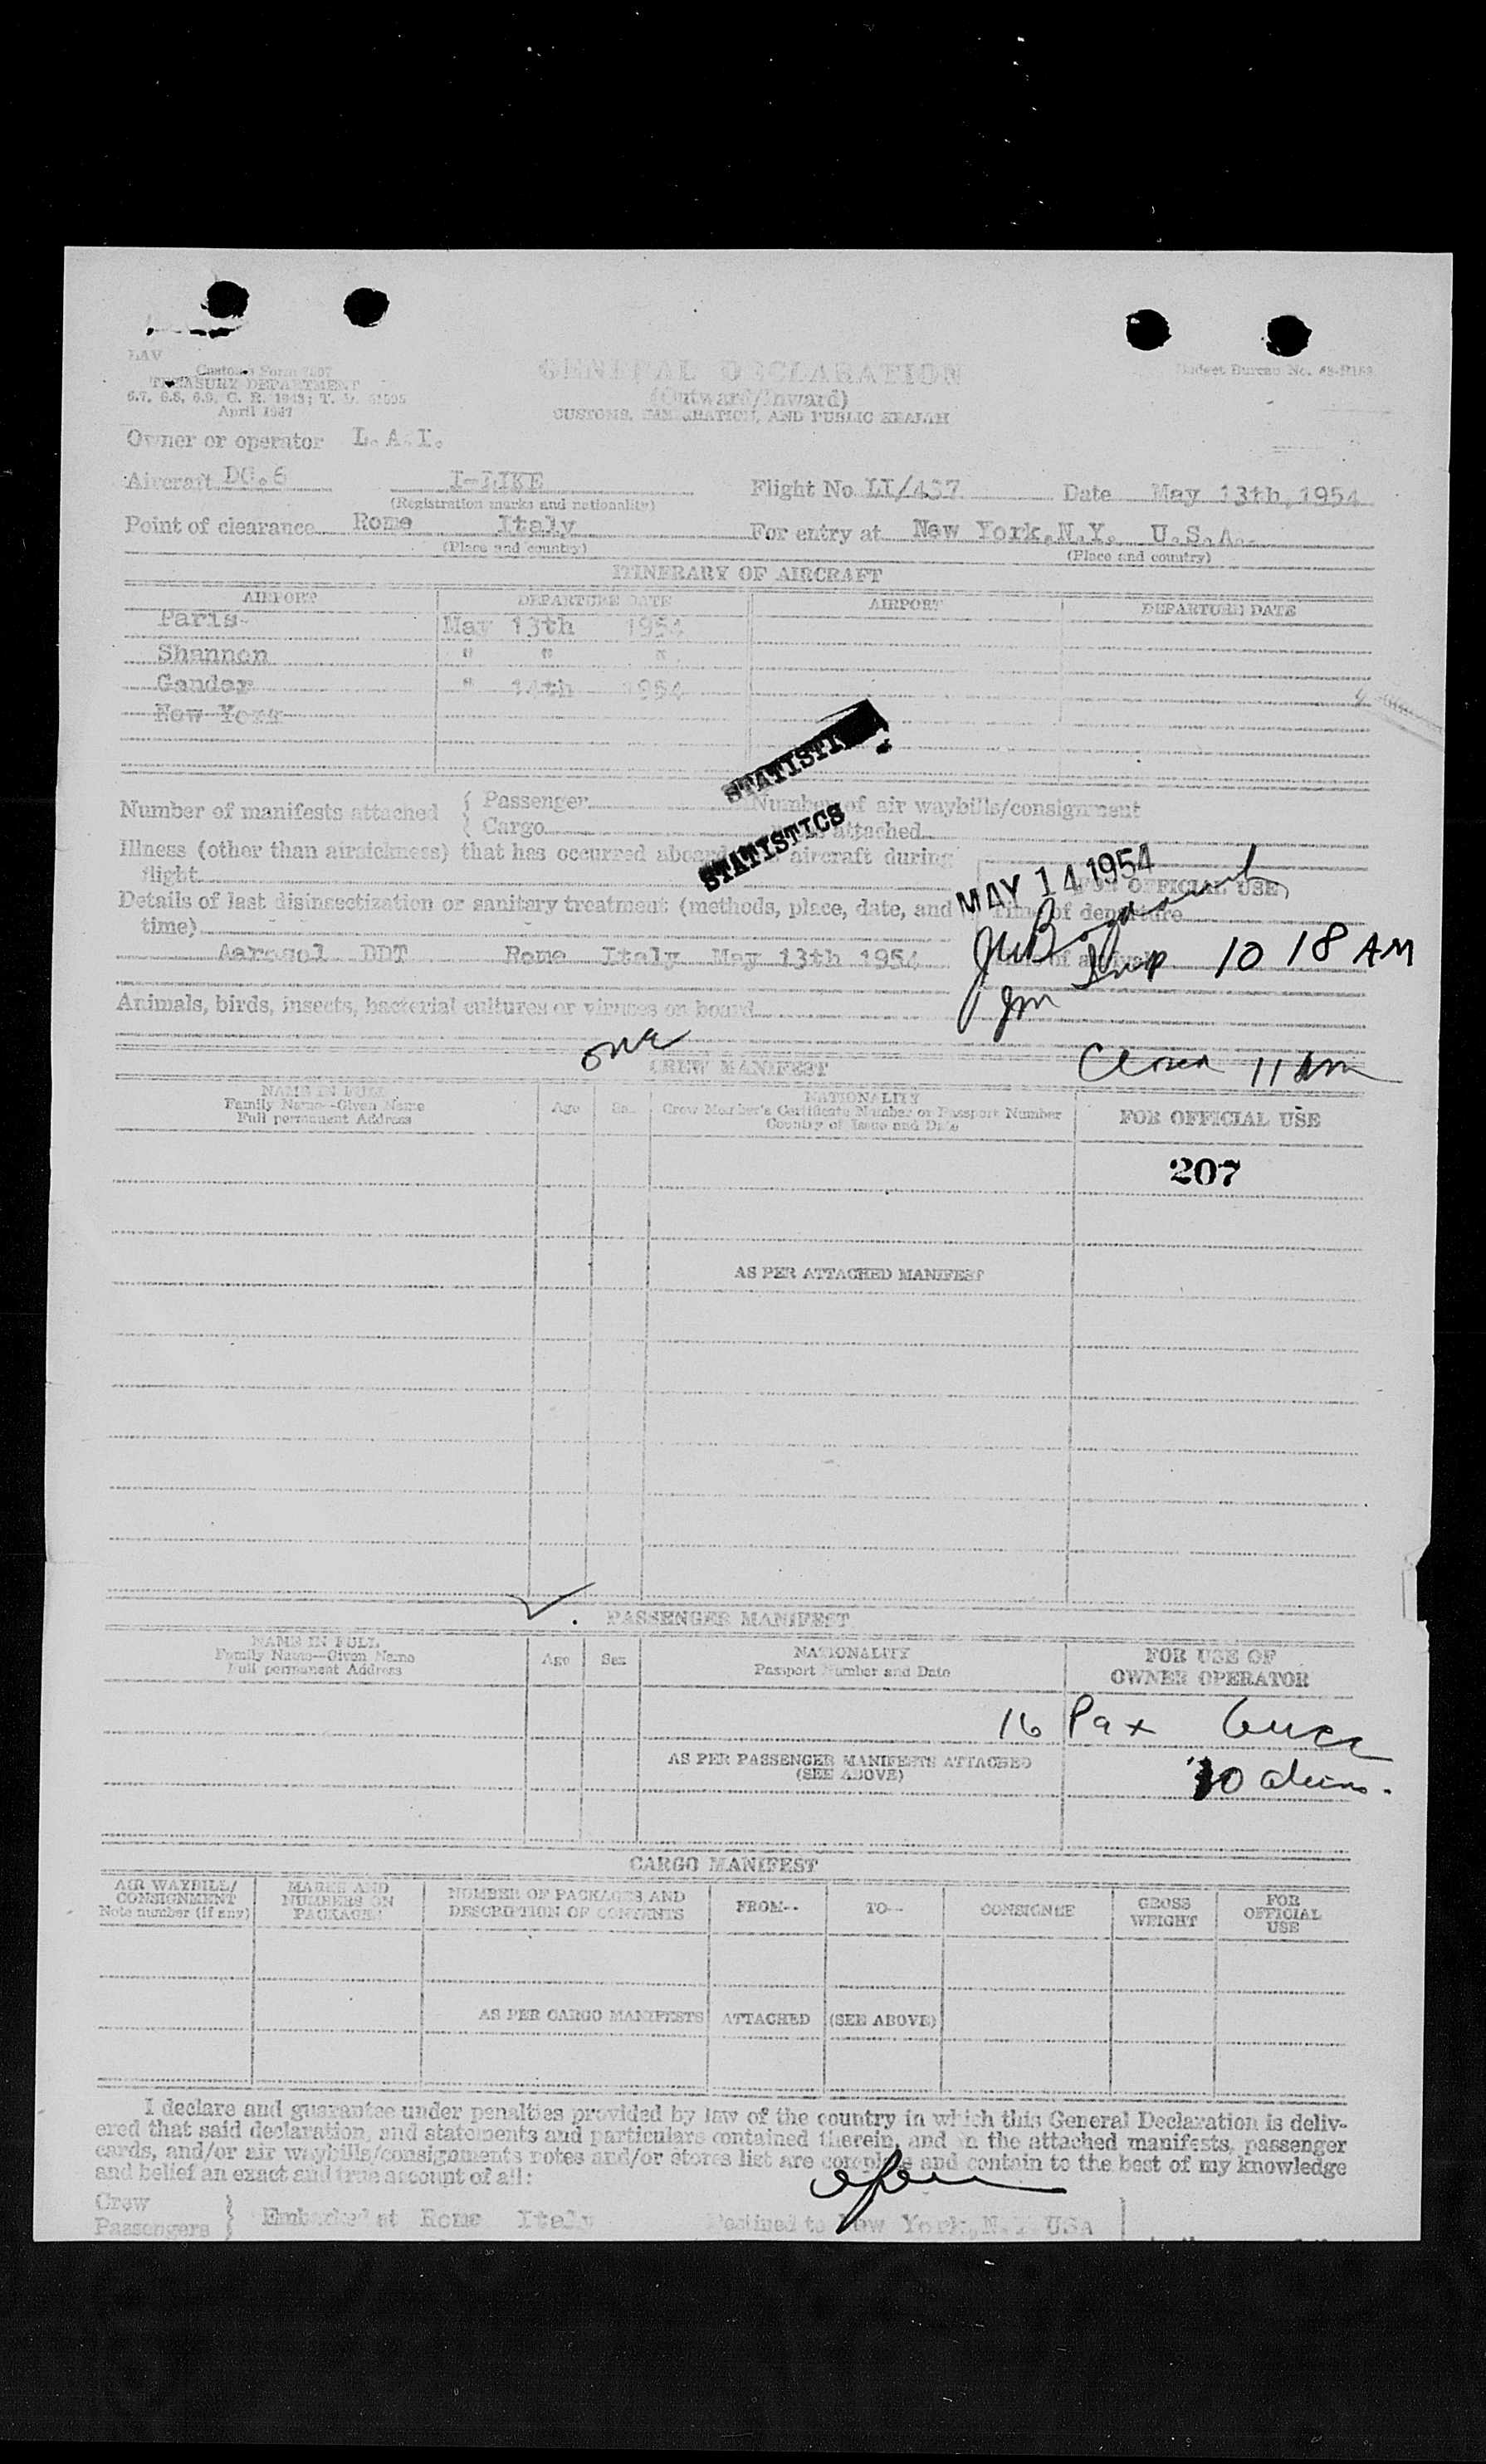 LAV
Customs Form 7507
TREASURY DEPARTMENT
April 1947
GENERAL DECLARATION
(Outward/Inward)
CUSTOMS, IMMIGRATION, AND PUBLIC HEALTH
Budget Bureau No.
Owner or operator L.A.I.
Aircraft DC.6 I-LIKE Flight No. LI/437 Date May 13th, 1954
(Registration marks and nationality)
Point of clearance Rome Italy For entry at New York,N.Y. U.S.A.
(Place and country) (Place and country)
ITINERARY OF AIRCRAFT
AIRPORT DEPARTURE DATE AIRPORT DEPARTURE DATE
Paris May 13th 1954
Shannon " " "
Gander " 14th 1954
New York
STATISTICS
Number of manifests attached { Passenger Number of air waybills/consignment
{ Cargo attached
STATISTICS
Illness (other than airsickness) that has occurred aboard aircraft during
flight
MAY 14 1954
FOR OFFICIAL USE
Details of last disinsectization or sanitary treatment (methods, place, date, and
time)
Time of departure
Aerosol DDT Rome Italy May 13th 1954
10 18 AM
Animals, birds, insects, bacterial cultures or viruses on board
CREW MANIFEST
11 am
NAME IN FULL
Family Name--Given Name
Full permanent Address
Age Sex
NATIONALITY
Crew Member's Certificate Number or Passport Number
Country of Issue and Date
FOR OFFICIAL USE
207
AS PER ATTACHED MANIFEST
PASSENGER MANIFEST
NAME IN FULL
Family Name--Given Name
Full permanent Address
Age Sex
NATIONALITY
Passport Number and Date
FOR USE OF
OWNER OPERATOR
16 Pax
AS PER PASSENGER MANIFESTS ATTACHED
(SEE ABOVE)
CARGO MANIFEST
AIR WAYBILL/
CONSIGNMENT
Note number (if any)
MARKS AND
NUMBERS ON
PACKAGES
NUMBER OF PACKAGES AND
DESCRIPTION OF CONTENTS
FROM--
TO--
CONSIGNEE
GROSS
WEIGHT
FOR
OFFICIAL
USE
AS PER CARGO MANIFESTS ATTACHED (SEE ABOVE)
I declare and guarantee under penalties provided by law of the country in which this General Declaration is deliv-
ered that said declaration, and statements and particulars contained therein, and in the attached manifests, passenger
cards, and/or air waybills/consignments notes and/or stores list are complete and contain to the best of my knowledge
and belief an exact and true account of all:
Crew
Passengers } Embarked at Rome Italy Destined to New York,N.Y. USA